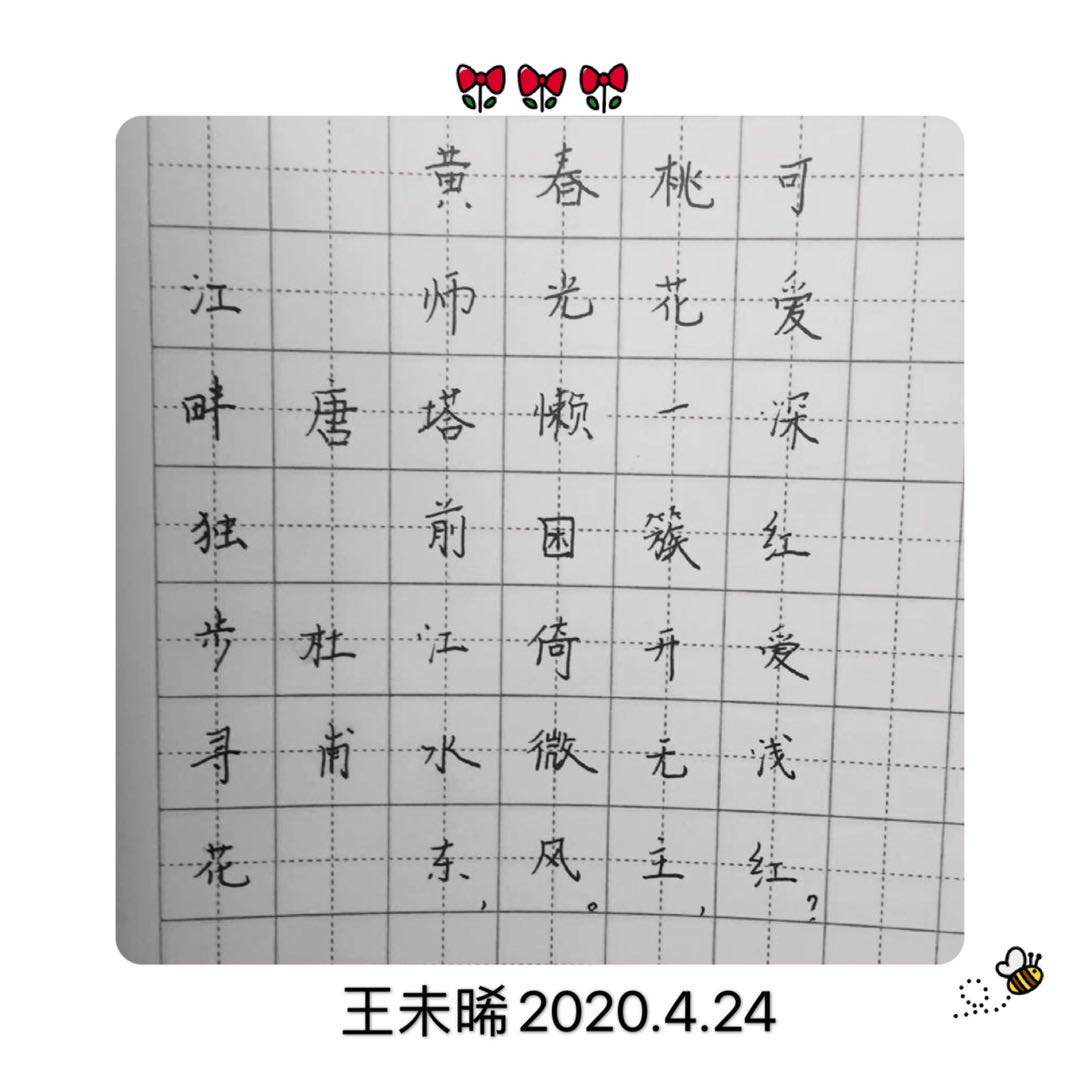 江畔独步寻花
唐 杜甫
黄师塔前江水东，
春光懒困倚微风。
桃花一簇开无主，
可爱深红爱浅红？
王未晞2020.4.24